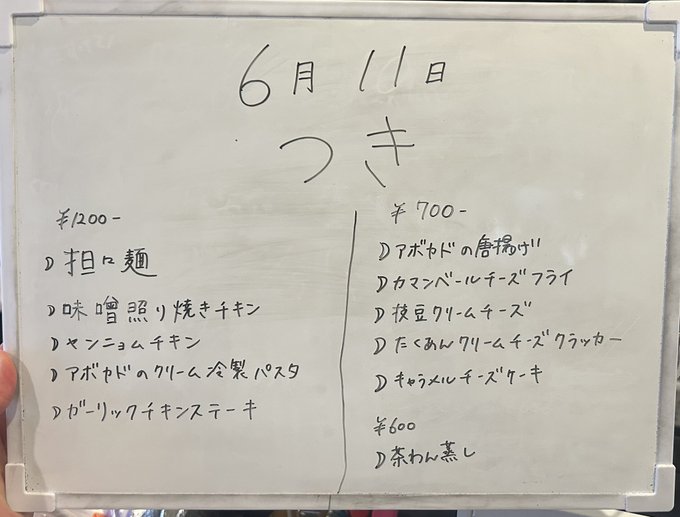 6月11日
つき
¥1200-
担々麺
味噌照り焼きチキン
ヤンニョムチキン
アボカドのクリーム冷製パスタ
ガーリックチキンステーキ
¥700-
アボカドの唐揚げ
カマンベールチーズフライ
枝豆クリームチーズ
たくあんクリームチーズクラッカー
キャラメルチーズケーキ
¥600
茶わん蒸し